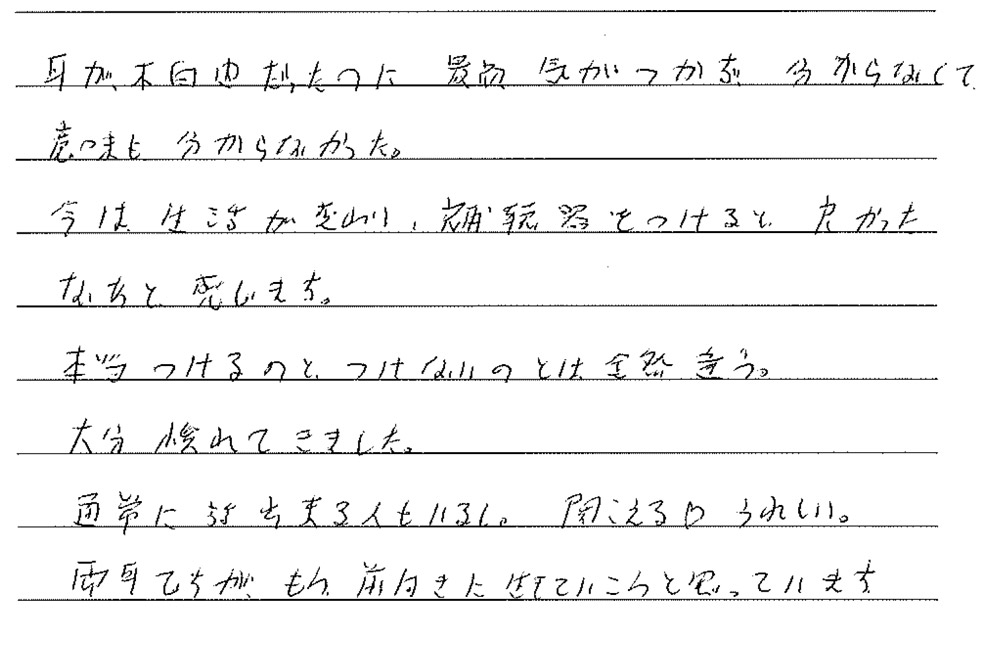 耳が不自由だったのに 最初 気がつかず 分からなくて
意味も 分からなかった。
今は 生活が変わり、補聴器をつけると 良かった
なあと 感じます。
本当 つけるのと つけないのとは 全然 違う。
大分 慣れてきました。
通常に 話出来る人もいるし。 聞こえる口 うれしい。
両耳ですが、もう 前向きに 生きていこうと思っています